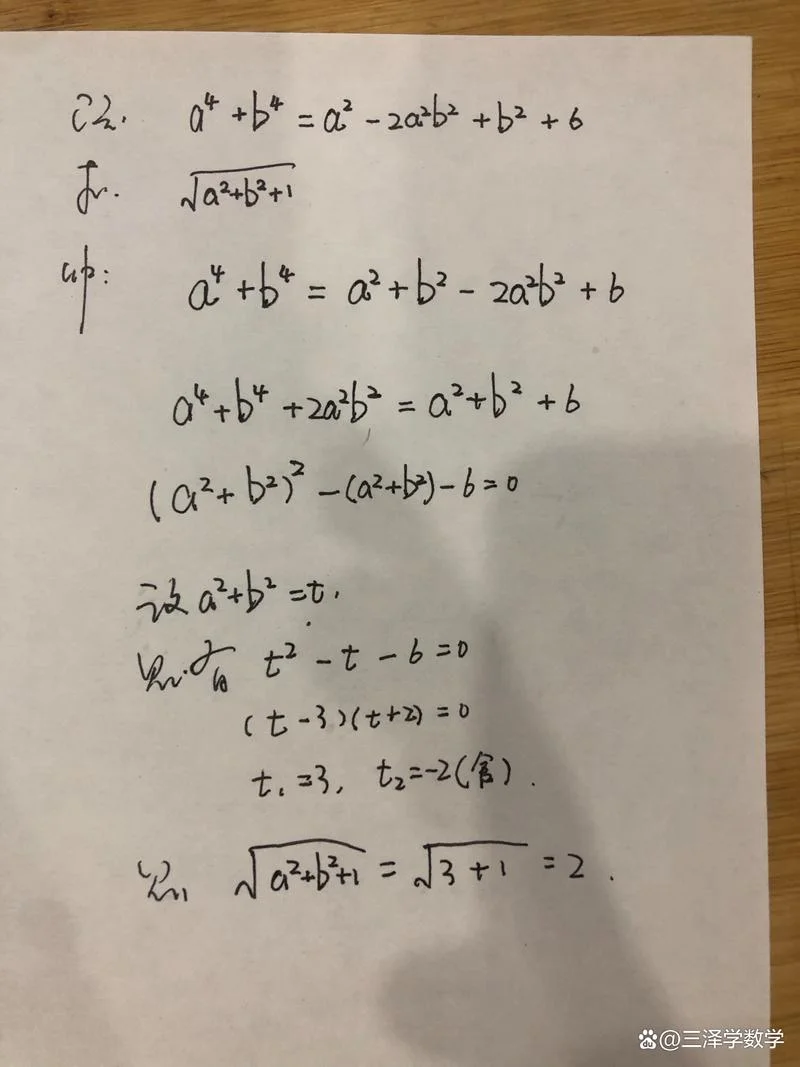 已知. a⁴+b⁴=a²-2a²b²+b²+6
求. √(a²+b²+1)
解: a⁴+b⁴=a²+b²-2a²b²+6
a⁴+b⁴+2a²b²=a²+b²+6
(a²+b²)²-(a²+b²)-6=0
设a²+b²=t.
则有 t²-t-6=0
(t-3)(t+2)=0
t₁=3, t₂=-2(舍).
则 √(a²+b²+1)=√(3+1)=2.
@三泽学数学